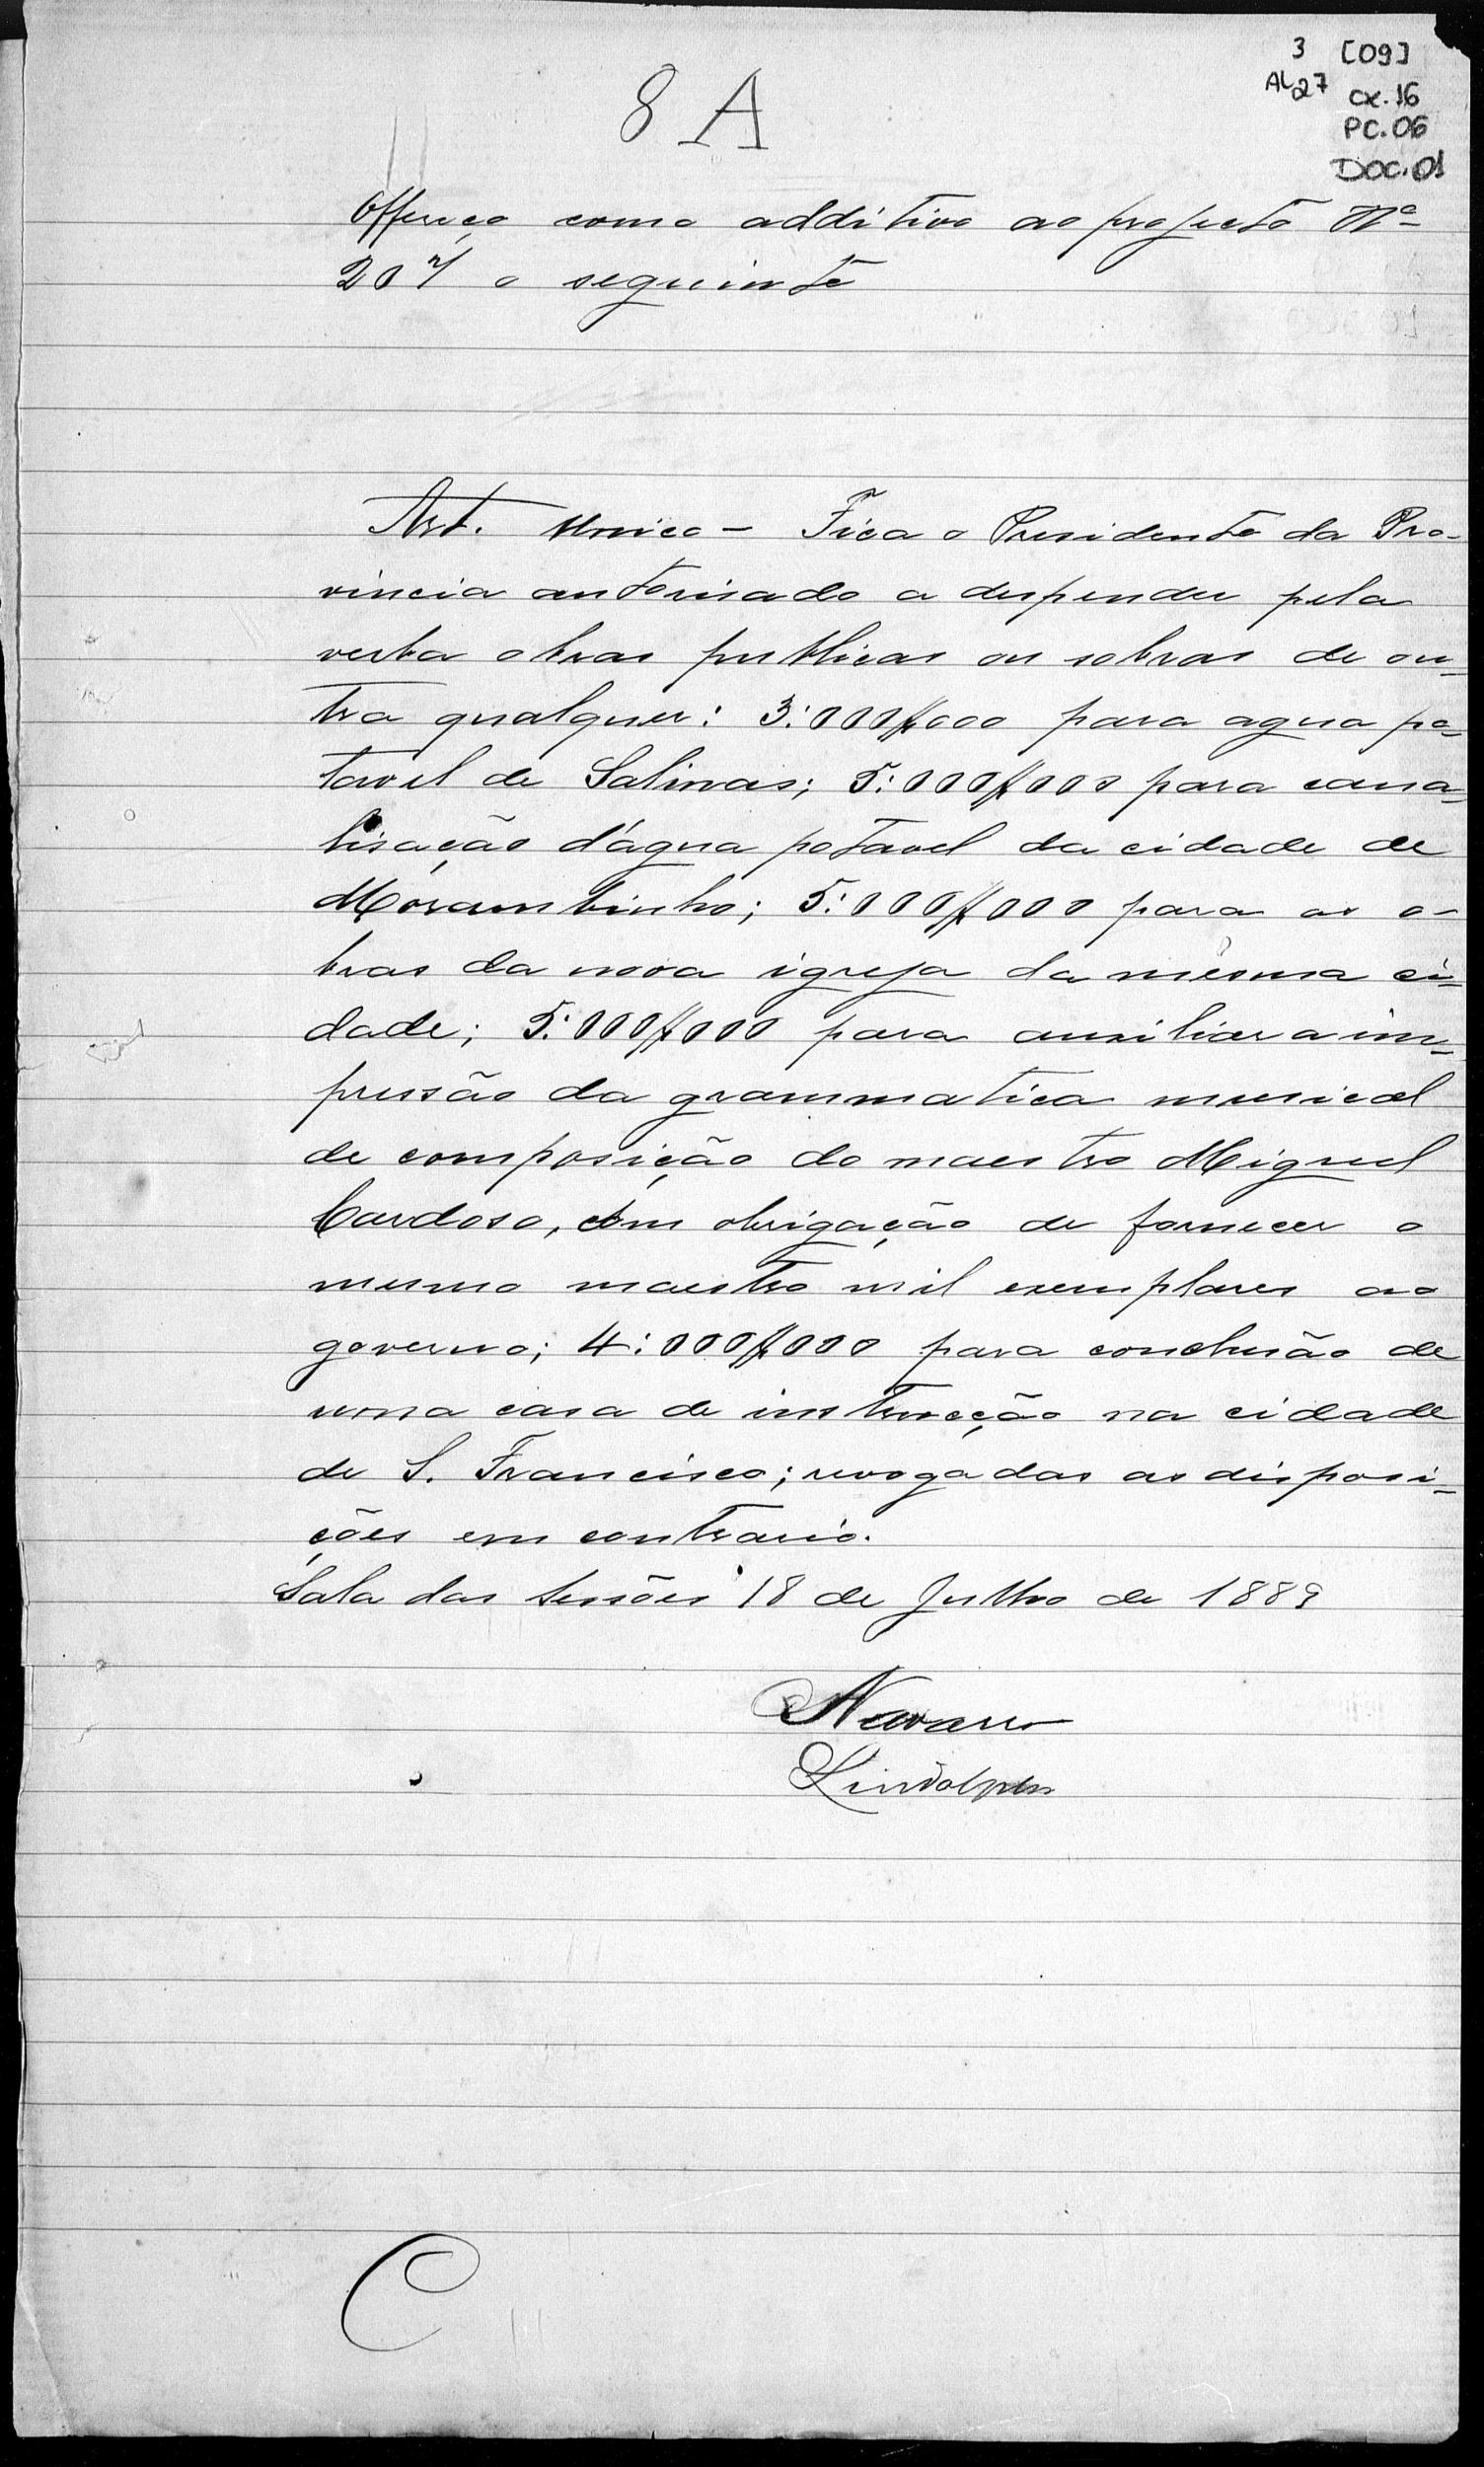 3 [09]
AL27 cx.16
PC.06
DOC.01
8 A
Offereço como additivo ao projecto Nº
207 o seguinte
Art. Unico - Fica o Presidente da Pro-
vincia autorisado a despender pela
verba obras publicas ou sobras de ou-
tra qualquer: 3:000$000 para agua po-
tavel de Salinas; 5:000$000 para cana-
lisação d'agua potavel da cidade de
Morrambinho; 5:000$000 para as o-
bras da nova igreja da mesma ci-
dade; 5:000$000 para auxiliar a im-
pressão da grammatica musical
de composição do maestro Miguel
Cardoso, com obrigação de fornecer o
mesmo maestro mil exemplares ao
governo; 4:000$000 para conclusão de
uma casa de instrucção na cidade
de S. Francisco; revogadas as disposi-
ções em contrario.
Sala das Sessões 18 de Julho de 1889
Navarro
Lindolpho
C